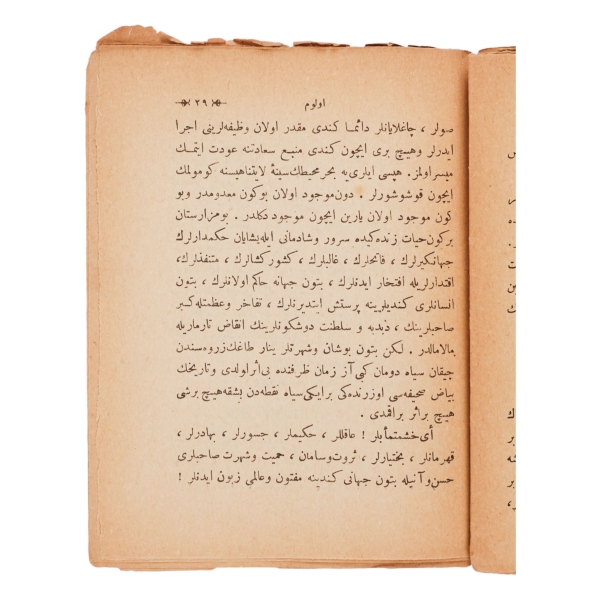 اولوم
٢٩
صولر ، چاغلايانلر دائمـا كندى مقدر اولان وظيفه‌لرينى اجرا
ايدرلر وهيچ برى ايچون كندى منبع سعادتنه عودت ايتمك
ميسر اولمز. هپسى ايلرى‌يه بحر محيطك سينهٔ لايتناهيسنه كومولمك
ايچون قوشوشورلر . دون موجود اولان بوكون معدومدر وبو
كون موجود اولان يارين ايچون موجود دكلدر . بو مزارستان
بركون حيات زنده‌كيده سرور وشادمانى ايله يشايان حكمدارلرك
جهانكيرلرك ، فاتحلرك ، غالبلرك ، كشوركشالرك ، متنفذلرك،
اقتدارلريله افتخار ايدنلرك ، بتون جهانه حاكم اولانلرك ، بتون
انسانلرى كنديلرينه پرستش ايتديرنلرك ، تفاخر وعظمتله كبر
صاحبلرينك ، دبدبه و سلطنت دوشكونلرينك انقاض تارماريله
مالامالدر . لكن بتون بوشان وشهرتلر ينار طاغك زروه‌سندن
چيقان سياه دومان كبى آز زمان ظرفنده بى‌اثر اولدى وتاريخك
بياض صحيفه‌سى اوزرنده‌كى بر ايكى سياه نقطه‌دن بشقه هيچ برشى
هيچ براثر براقمدى .
أى خشمتمأبلر ! عاقللر ، حكيملر ، جسورلر ، بهادرلر ،
قهرمانلر ، بختيارلر ، ثروت وسامان ، حميت وشهرت صاحبلرى
حسن وآنيله بتون جهانى كندينه مفتون وعالمى زبون ايدنلر !